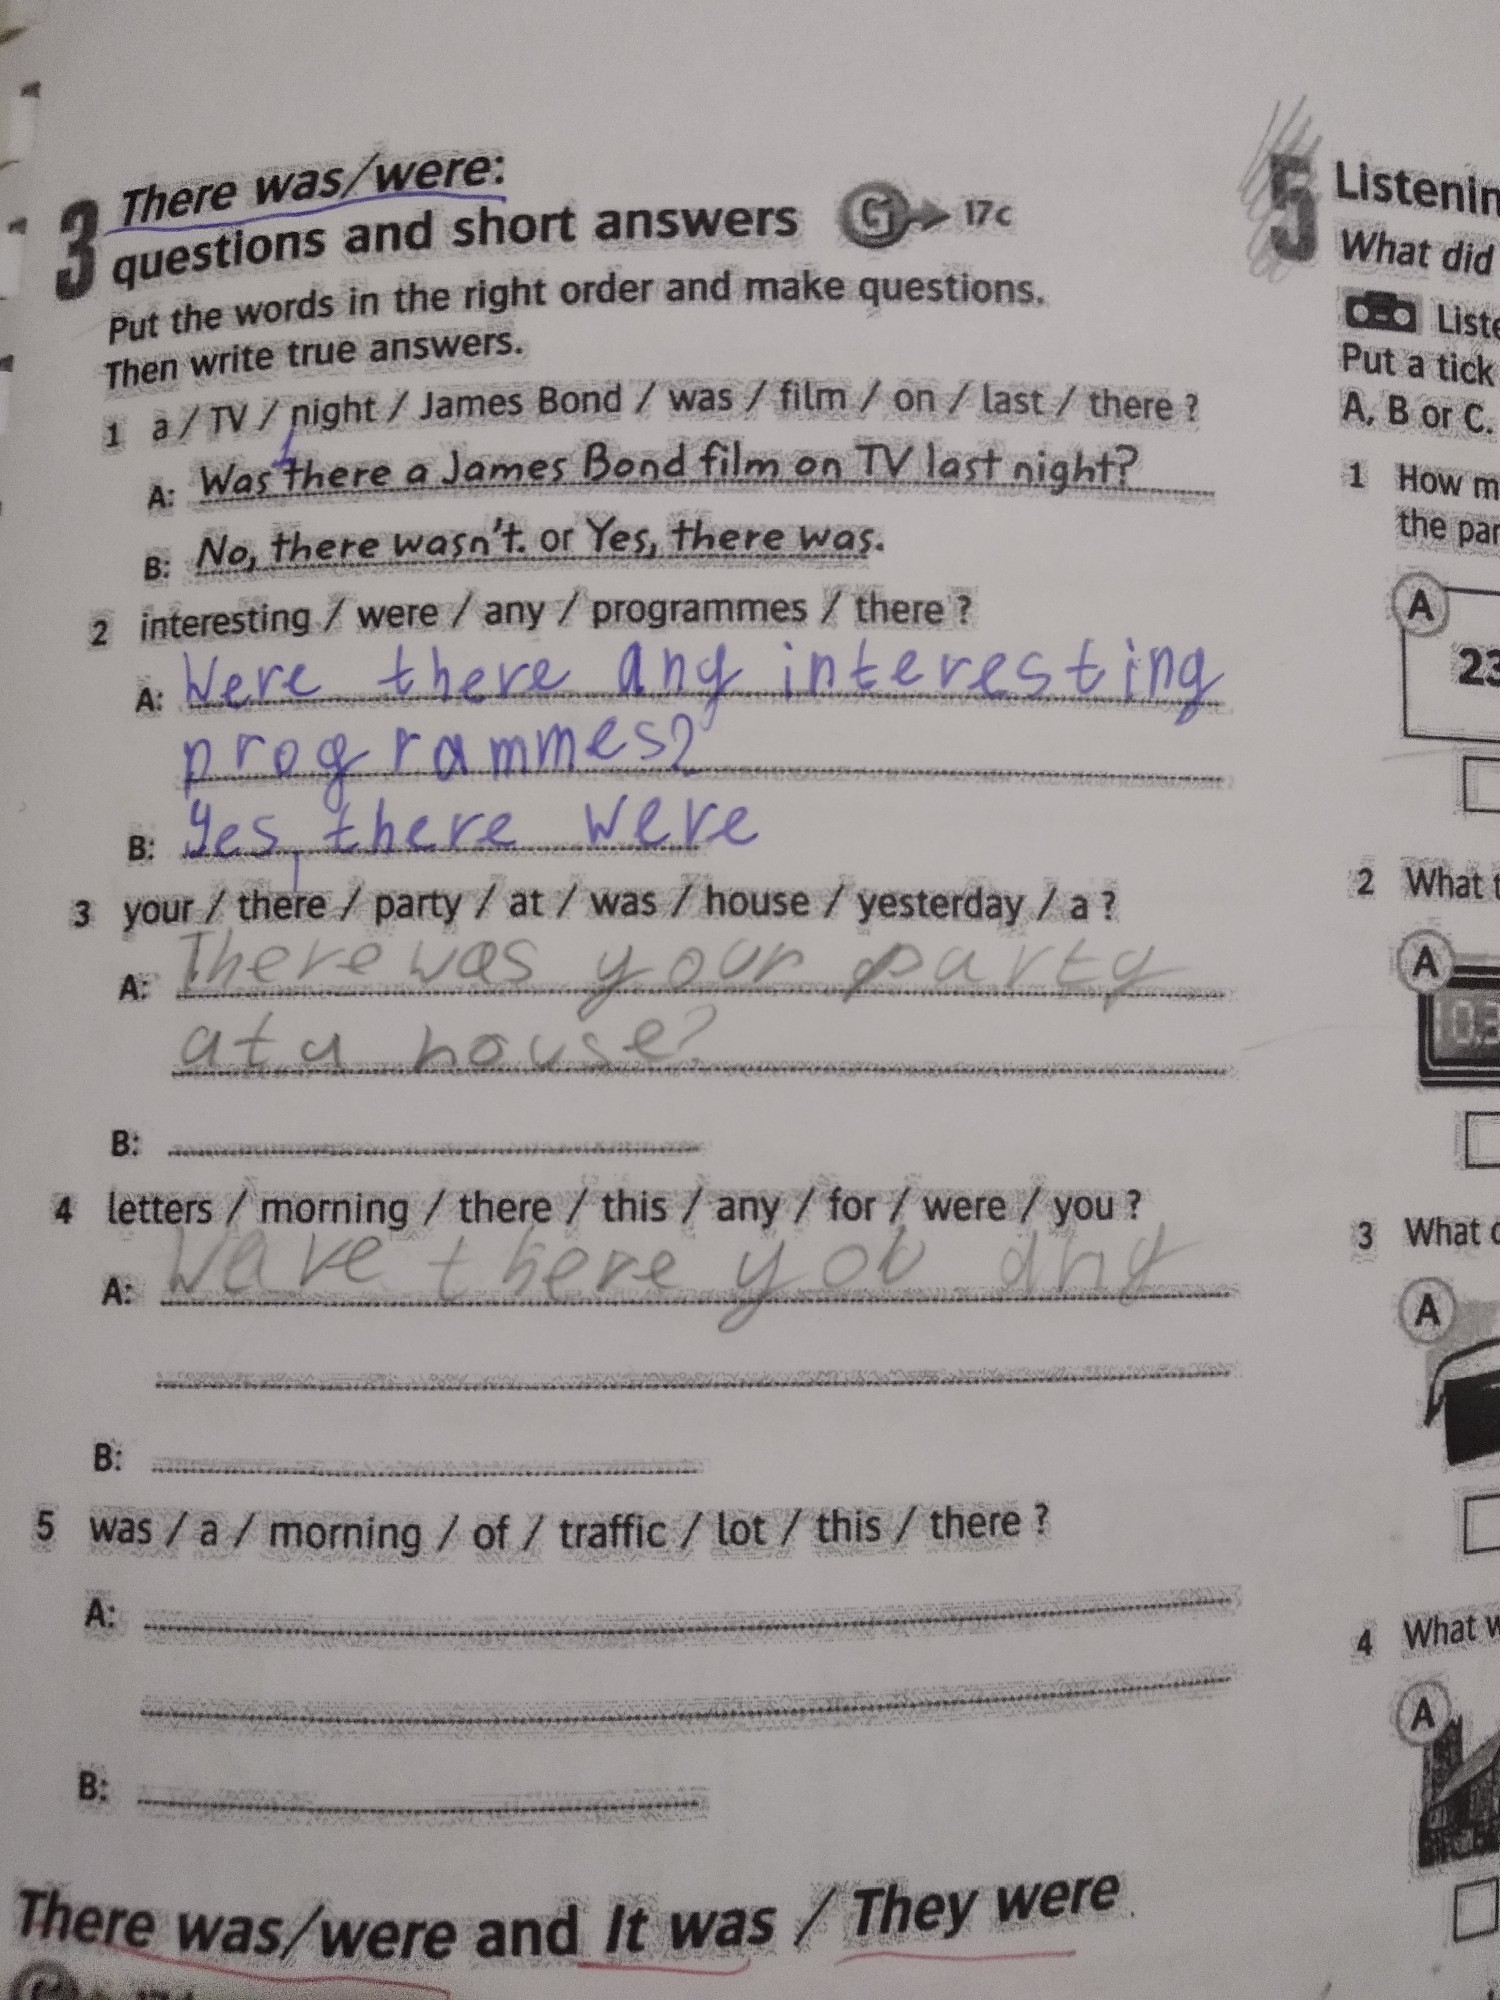 3 There was/were:
questions and short answers G 17c
Put the words in the right order and make questions.
Then write true answers.
1 a / TV / night / James Bond / was / film / on / last / there ?
A: Was there a James Bond film on TV last night?
B: No, there wasn't. or Yes, there was.
2 interesting / were / any / programmes / there ?
A: Were there any interesting
programmes?
B: Yes, there were
3 your / there / party / at / was / house / yesterday / a ?
A: There was your party
at a house?
B:
4 letters / morning / there / this / any / for / were / you ?
A: Ware there you any
B:
5 was / a / morning / of / traffic / lot / this / there ?
A:
B:
There was/were and It was / They were
5 Listenin
What did
Liste
Put a tick
A, B or C.
1 How m
the par
A
23
2 What t
A
10,3
3 What
A
4 What w
A